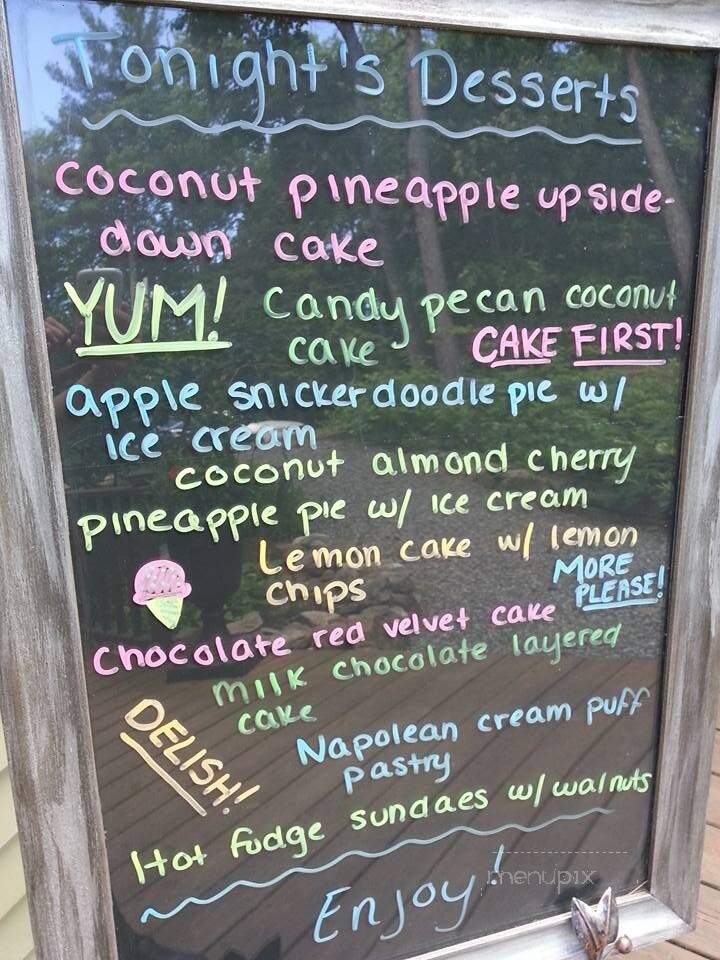 Tonight's Desserts
coconut pineapple upside-
down cake
YUM! Candy pecan coconut
cake CAKE FIRST!
apple snickerdoodle pie w/
ice cream
coconut almond cherry
pineapple pie w/ ice cream
Lemon cake w/ lemon
chips
MORE
PLEASE!
Chocolate red velvet cake
milk chocolate layered
cake
DELISH!
Napolean cream puff
pastry
Hot fudge sundaes w/ walnuts
Enjoy!
menupix